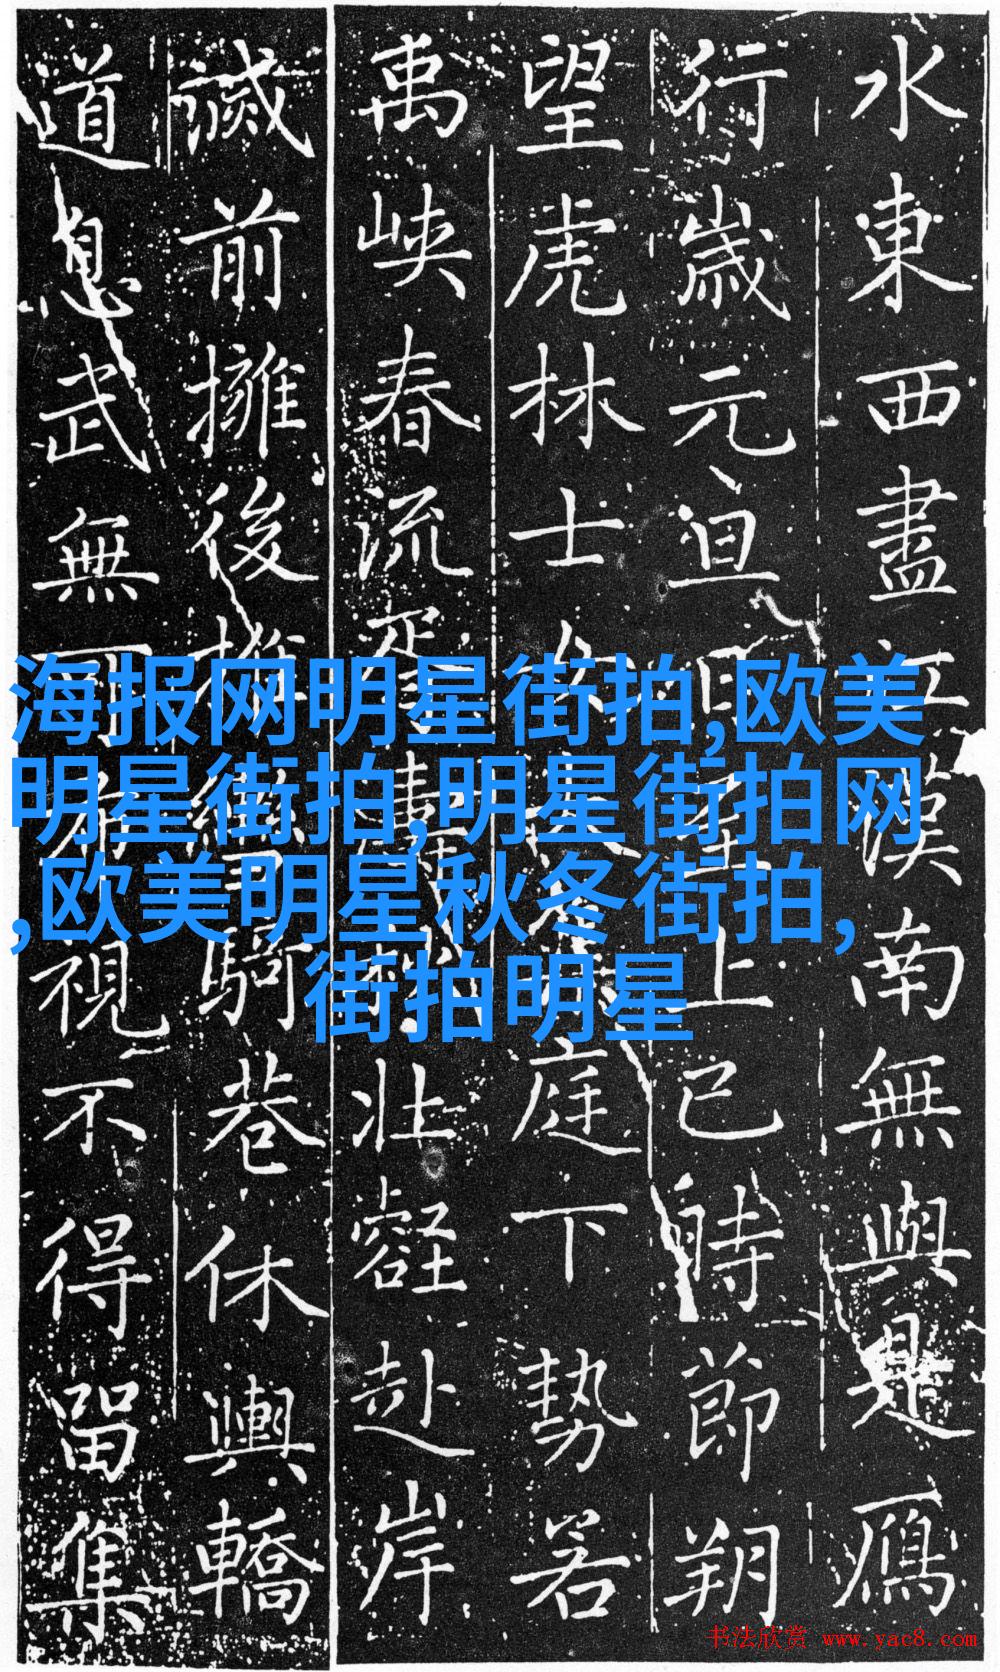 水東西盡江漢南無與是鴈
行歲元旦上巳時節朔
望虎林士庭下勢若
禹峽春流壯壑赴岸
前擁後騎巷休輿轎
道息武無視不得留集
海报网明星街拍,欧美
明星街拍,明星街拍网
,欧美明星秋冬街拍,
街拍明星
书法欣赏 www.yac8.com